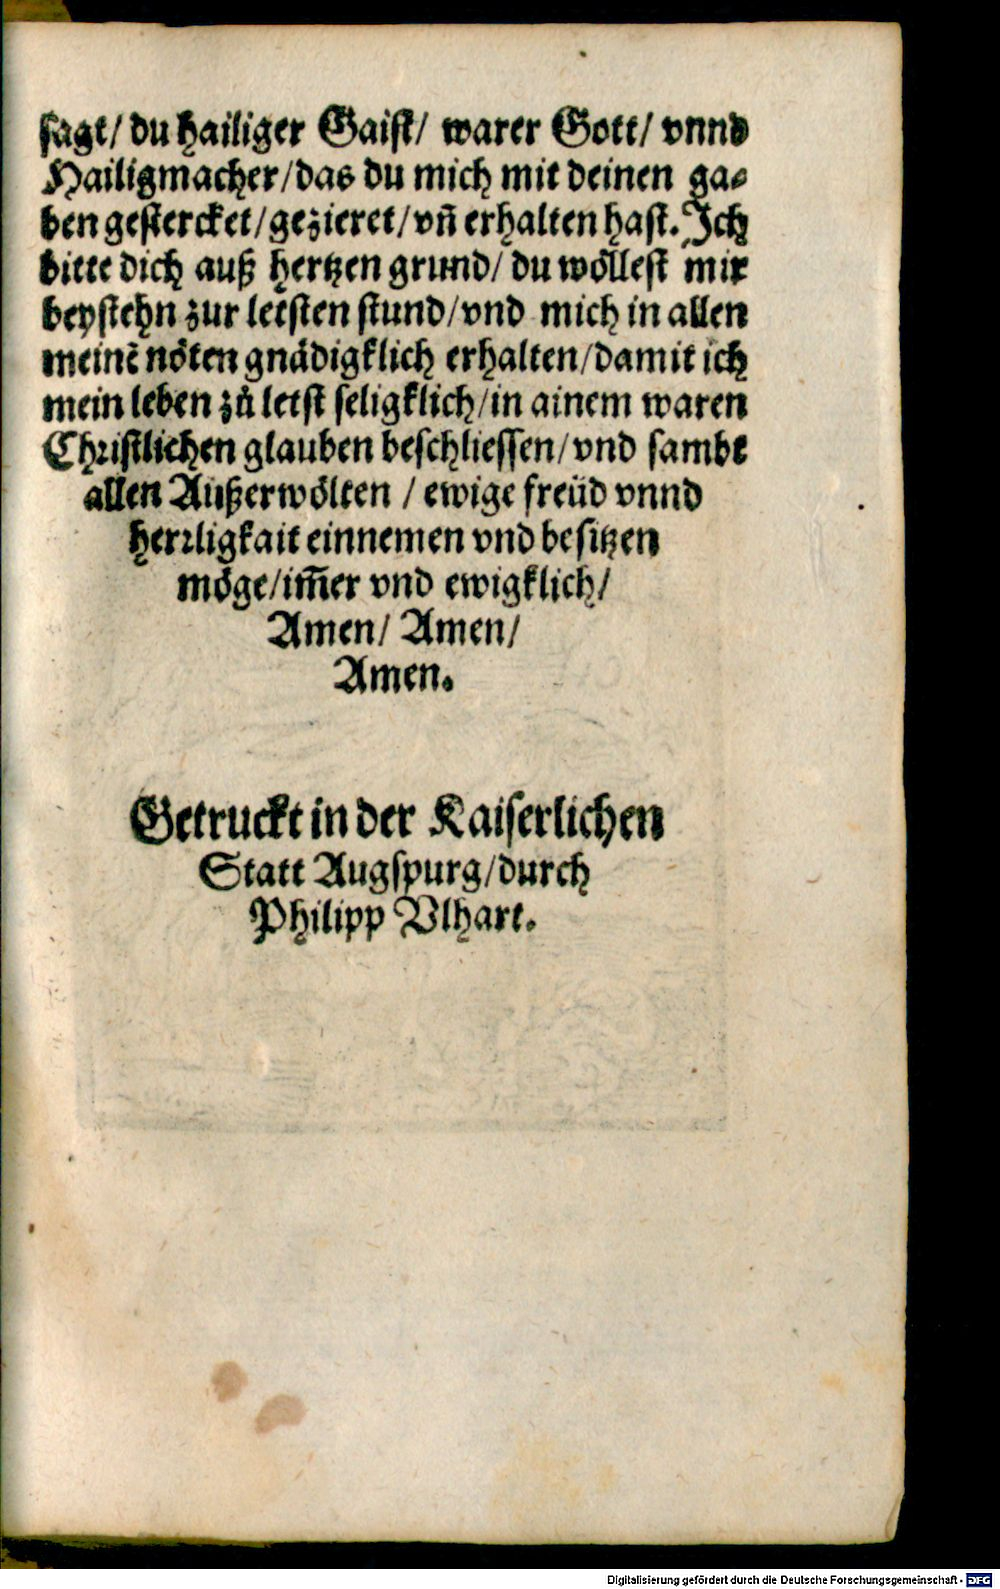 sagt/ du hailiger Gaist/ warer Gott/ vnnd
Hailigmacher/das du mich mit deinen ga-
ben gestercket/gezieret/vn̄ erhalten hast. Ich
bitte dich auß hertzen grund/ du wöllest mir
beystehn zur letsten stund/vnd mich in allen
meinē nöten gnädigklich erhalten/damit ich
mein leben zů letst seligklich/in ainem waren
Christlichen glauben beschliessen/vnd sambt
allen Außerwölten / ewige freüd vnnd
herrligkait einnemen vnd besitzen
möge/im̄er vnd ewigklich/
Amen/ Amen/
Amen.
Getruckt in der Kaiserlichen
Statt Augspurg/durch
Philipp Vlhart.
Digitalisierung gefördert durch die Deutsche Forschungsgemeinschaft - DFG